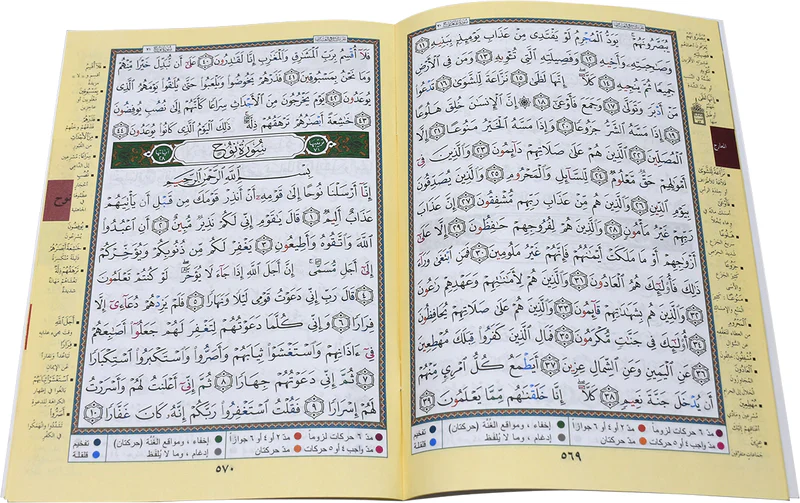 يُبَصَّرُونَهُمْ يَوَدُّ ٱلْمُجْرِمُ لَوْ يَفْتَدِى مِنْ عَذَابِ يَوْمِئِذٍۭ بِبَنِيهِ ١١
وَصَٰحِبَتِهِۦ وَأَخِيهِ ١٢ وَفَصِيلَتِهِ ٱلَّتِى تُـْٔوِيهِ ١٣ وَمَن فِى ٱلْأَرْضِ
جَمِيعًا ثُمَّ يُنجِيهِ ١٤ كَلَّآ إِنَّهَا لَظَىٰ ١٥ نَزَّاعَةً لِّلشَّوَىٰ ١٦ تَدْعُوا۟
مَنْ أَدْبَرَ وَتَوَلَّىٰ ١٧ وَجَمَعَ فَأَوْعَىٰٓ ١٨ ۞ إِنَّ ٱلْإِنسَٰنَ خُلِقَ هَلُوعًا
١٩ إِذَا مَسَّهُ ٱلشَّرُّ جَزُوعًا ٢٠ وَإِذَا مَسَّهُ ٱلْخَيْرُ مَنُوعًا ٢١ إِلَّا
ٱلْمُصَلِّينَ ٢٢ ٱلَّذِينَ هُمْ عَلَىٰ صَلَاتِهِمْ دَآئِمُونَ ٢٣ وَٱلَّذِينَ فِىٓ
أَمْوَٰلِهِمْ حَقٌّ مَّعْلُومٌ ٢٤ لِّلسَّآئِلِ وَٱلْمَحْرُومِ ٢٥ وَٱلَّذِينَ يُصَدِّقُونَ
بِيَوْمِ ٱلدِّينِ ٢٦ وَٱلَّذِينَ هُم مِّنْ عَذَابِ رَبِّهِم مُّشْفِقُونَ ٢٧ إِنَّ عَذَابَ
رَبِّهِمْ غَيْرُ مَأْمُونٍ ٢٨ وَٱلَّذِينَ هُمْ لِفُرُوجِهِمْ حَٰفِظُونَ ٢٩ إِلَّا عَلَىٰٓ
أَزْوَٰجِهِمْ أَوْ مَا مَلَكَتْ أَيْمَٰنُهُمْ فَإِنَّهُمْ غَيْرُ مَلُومِينَ ٣٠ فَمَنِ ٱبْتَغَىٰ وَرَآءَ
ذَٰلِكَ فَأُو۟لَٰٓئِكَ هُمُ ٱلْعَادُونَ ٣١ وَٱلَّذِينَ هُمْ لِأَمَٰنَٰتِهِمْ وَعَهْدِهِمْ رَٰعُونَ
٣٢ وَٱلَّذِينَ هُم بِشَهَٰدَٰتِهِمْ قَآئِمُونَ ٣٣ وَٱلَّذِينَ هُمْ عَلَىٰ صَلَاتِهِمْ يُحَافِظُونَ
٣٤ أُو۟لَٰٓئِكَ فِى جَنَّٰتٍ مُّكْرَمُونَ ٣٥ فَمَالِ ٱلَّذِينَ كَفَرُوا۟ قِبَلَكَ مُهْطِعِينَ
٣٦ عَنِ ٱلْيَمِينِ وَعَنِ ٱلشِّمَالِ عِزِينَ ٣٧ أَيَطْمَعُ كُلُّ ٱمْرِئٍ مِّنْهُمْ
أَن يُدْخَلَ جَنَّةَ نَعِيمٍ ٣٨ كَلَّآ إِنَّا خَلَقْنَٰهُم مِّمَّا يَعْلَمُونَ ٣٩
المعارج
مدّ ٦ حركات لزوماً مدّ ٢ أو ٤ أو ٦ جوازاً إخفاء، ومواقع الغُنَّة (حركتان) تفخيم
مدّ واجب ٤ أو ٥ حركات مدّ حركتان إدغام، وما لا يُلفَظ قلقلة
٥٦٩
فَلَآ أُقْسِمُ بِرَبِّ ٱلْمَشَٰرِقِ وَٱلْمَغَٰرِبِ إِنَّا لَقَٰدِرُونَ ٤٠ عَلَىٰٓ أَن نُّبَدِّلَ خَيْرًا مِّنْهُمْ
وَمَا نَحْنُ بِمَسْبُوقِينَ ٤١ فَذَرْهُمْ يَخُوضُوا۟ وَيَلْعَبُوا۟ حَتَّىٰ يُلَٰقُوا۟ يَوْمَهُمُ ٱلَّذِى
يُوعَدُونَ ٤٢ يَوْمَ يَخْرُجُونَ مِنَ ٱلْأَجْدَاثِ سِرَاعًا كَأَنَّهُمْ إِلَىٰ نُصُبٍ يُوفِضُونَ
٤٣ خَٰشِعَةً أَبْصَٰرُهُمْ تَرْهَقُهُمْ ذِلَّةٌ ذَٰلِكَ ٱلْيَوْمُ ٱلَّذِى كَانُوا۟ يُوعَدُونَ ٤٤
ترتيبها ٧١ سُورَةُ نُوحٍ آياتها ٢٨
بِسْمِ ٱللَّهِ ٱلرَّحْمَٰنِ ٱلرَّحِيمِ
إِنَّآ أَرْسَلْنَا نُوحًا إِلَىٰ قَوْمِهِۦٓ أَنْ أَنذِرْ قَوْمَكَ مِن قَبْلِ أَن يَأْتِيَهُمْ
عَذَابٌ أَلِيمٌ ١ قَالَ يَٰقَوْمِ إِنِّى لَكُمْ نَذِيرٌ مُّبِينٌ ٢ أَنِ ٱعْبُدُوا۟
ٱللَّهَ وَٱتَّقُوهُ وَأَطِيعُونِ ٣ يَغْفِرْ لَكُم مِّن ذُنُوبِكُمْ وَيُؤَخِّرْكُمْ
إِلَىٰٓ أَجَلٍ مُّسَمًّى إِنَّ أَجَلَ ٱللَّهِ إِذَا جَآءَ لَا يُؤَخَّرُ لَوْ كُنتُمْ تَعْلَمُونَ
٤ قَالَ رَبِّ إِنِّى دَعَوْتُ قَوْمِى لَيْلًا وَنَهَارًا ٥ فَلَمْ يَزِدْهُمْ دُعَآءِىٓ إِلَّا
فِرَارًا ٦ وَإِنِّى كُلَّمَا دَعَوْتُهُمْ لِتَغْفِرَ لَهُمْ جَعَلُوٓا۟ أَصَٰبِعَهُمْ
فِىٓ ءَاذَانِهِمْ وَٱسْتَغْشَوْا۟ ثِيَابَهُمْ وَأَصَرُّوا۟ وَٱسْتَكْبَرُوا۟ ٱسْتِكْبَارًا
٧ ثُمَّ إِنِّى دَعَوْتُهُمْ جِهَارًا ٨ ثُمَّ إِنِّىٓ أَعْلَنتُ لَهُمْ وَأَسْرَرْتُ
لَهُمْ إِسْرَارًا ٩ فَقُلْتُ ٱسْتَغْفِرُوا۟ رَبَّكُمْ إِنَّهُۥ كَانَ غَفَّارًا ١٠
نوح
مدّ ٦ حركات لزوماً مدّ ٢ أو ٤ أو ٦ جوازاً إخفاء، ومواقع الغُنَّة (حركتان) تفخيم
مدّ واجب ٤ أو ٥ حركات مدّ حركتان إدغام، وما لا يُلفَظ قلقلة
٥٧٠